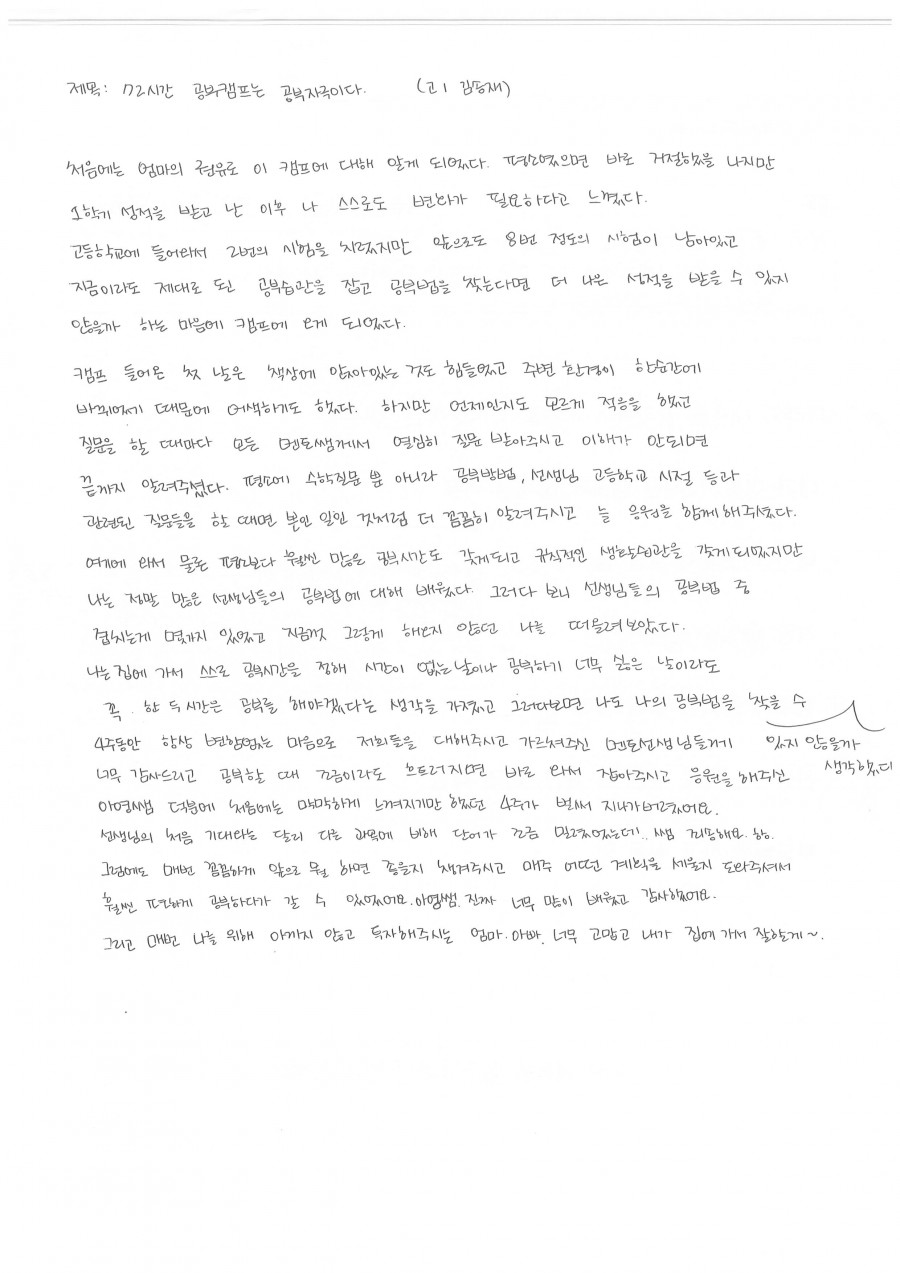 제목: 72시간 공부캠프는 공부자극이다. (고1 김승재)
처음에는 엄마의 권유로 이 캠프에 대해 알게 되었다. 평소였으면 바로 거절했을 나지만
1학기 성적을 받고 난 이후 나 스스로도 변화가 필요하다고 느꼈다.
고등학교에 들어와서 2번의 시험을 치렀지만 앞으로도 8번 정도의 시험이 남아있고
지금이라도 제대로 된 공부습관을 잡고 공부법을 찾는다면 더 나은 성적을 받을 수 있지
않을까 하는 마음에 캠프에 오게 되었다.
캠프 들어온 첫 날은 책상에 앉아있는 것도 힘들었고 주변 환경이 한순간에
바뀌었기 때문에 어색하기도 했다. 하지만 언제인지도 모르게 적응을 했고
질문을 할 때마다 모든 멘토쌤께서 열심히 질문 받아주시고 이해가 안되면
끝까지 알려주셨다. 평소에 수학질문 뿐 아니라 공부방법, 선생님 고등학교 시절 등과
관련된 질문들을 할 때면 본인 일인 것처럼 더 꼼꼼히 알려주시고 늘 응원을 함께 해주셨다.
여기에 와서 물론 평소보다 훨씬 많은 공부시간도 갖게되고 규칙적인 생활습관을 갖게되었지만
나는 정말 많은 선생님들의 공부법에 대해 배웠다. 그러다 보니 선생님들의 공부법 중
겹치는게 몇가지 있었고 지금껏 그렇게 해보지 않았던 나를 떠올려보았다.
나는 집에 가서 스스로 공부시간을 정해 시간이 없는날이나 공부하기 너무 싫은 날이라도
꼭 한 두시간은 공부를 해야겠다는 생각을 가졌고 그러다보면 나도 나의 공부법을 찾을 수
있지 않을까
생각했다
4주동안 항상 변함없는 마음으로 저희들을 대해주시고 가르쳐주신 멘토선생님들께
너무 감사드리고 공부할 때 조금이라도 흐트러지면 바로 와서 잡아주시고 응원을 해주신
아영쌤 덕분에 처음에는 막막하게 느껴지기만 했던 4주가 벌써 지나가버렸어요.
선생님의 처음 기대와는 달리 다른 과목에 비해 단어가 조금 밀렸었는데.. 쌤 죄송해요.
그럼에도 매번 꼼꼼하게 앞으로 뭘 하면 좋을지 챙겨주시고 매주 어떤 계획을 세울지 도와주셔서
훨씬 편하게 공부하다가 갈 수 있었어요. 아영쌤. 진짜 너무 많이 배웠고 감사했어요.
그리고 매번 나를 위해 아끼지 않고 투자해주시는 엄마.아빠. 너무 고맙고 내가 집에 가서 잘할게~.